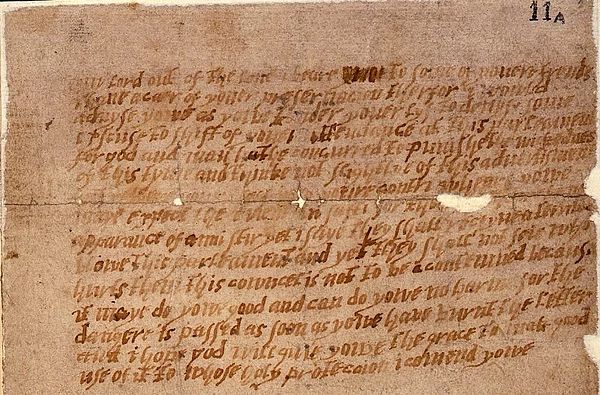 11A
my lord out of the love i beare to some of youere frends
i have a caer of youer preseruacion therfor i would
aduyse yowe as yowe tender youer lyf to deuyse some
excuse to shift of youer attendance at this parleament
for god and man hathe concurred to punishe the wickednes
of this tyme and thinke not slightlye of this aduertisment
youre contri yowe
maye expect the euent in safti for
apparance of anni stir yet i saye they shall receyue a terrible
blowe this parleament and yet they shall not seie who
hurts them this cowncel is not to be acontemned because
it maye do yowe good and can do yowe no harme for the
dangere is passed as soon as yowe have burnt the letter
and i hope god will giue yowe the grace to mak good
use of it to whose holy proteccion i comend yowe